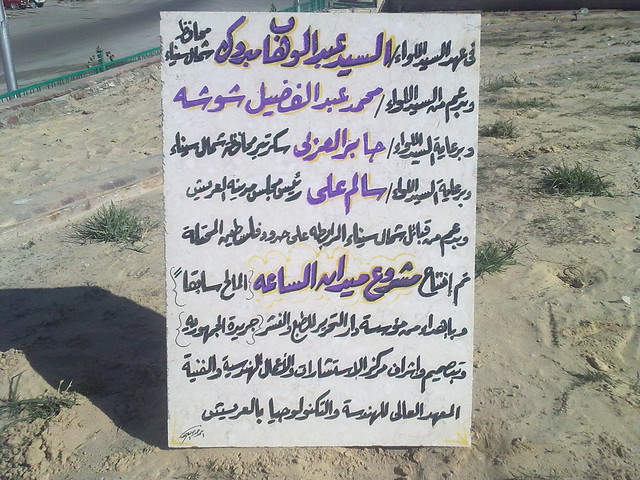 فى عهد السيد اللواء/ السيد عبد الوهاب مبروك محافظ شمال سيناء
وبدعم من السيد اللواء/ محمد عبد الفضيل شوشه
وبرعاية السيد اللواء/ جابر العربى سكرتير محافظة شمال سيناء
وبرعاية السيد اللواء/ سالم على رئيس مجلس مدينة العريش
وبدعم من قبائل شمال سيناء المرابطة على حدود فلسطين المحتلة
تم إفتتاح مشروع ميدان الساعه (المالح سابقا)
وبإهداء من مؤسسة دار التحرير للطبع والنشر (جريدة الجمهورية)
وتصميم واشراف مركز الاستشارات والأعمال الهندسية والفنية
المعهد العالى للهندسة والتكنولوجيا بالعريش